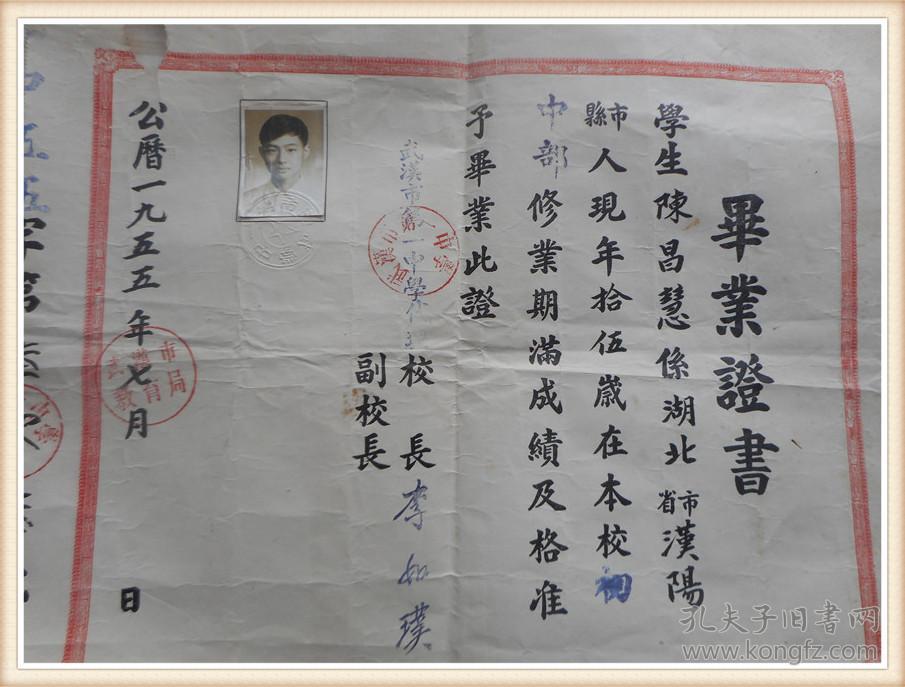 畢業證書
學生陳昌慧係湖北省市漢陽
縣市人現年拾伍歲在本校初
中部修業期滿成績及格准
予畢業此證
武漢市第一中學
校長李如璞
副校長
公曆一九五五年七月 日
武漢市教育局
五五字第
孔夫子旧书网
www.kongfz.com